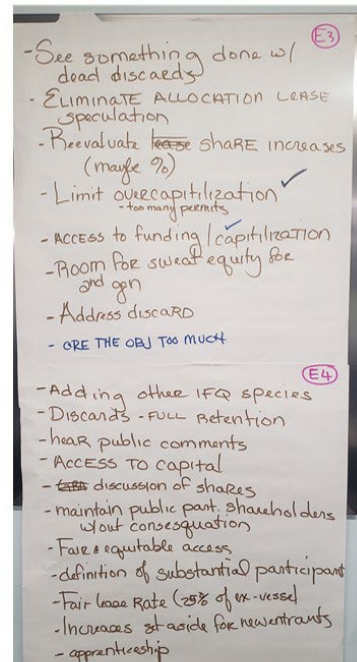 E3
- See something done w/
dead discards
- ELIMINATE ALLOCATION LEASE
speculation
- Reevaluate lease share increases
(maybe %)
- Limit overcapitilization ✓
- too many permits
- ACCESS to funding / capitilization
- Room for sweat equity for
2nd gen
- Address discard
- ARE THE OBJ TOO MUCH
E4
- Adding other IFQ species
- Discards - FULL Retention
- hear public comments
- ACCESS TO CAPITAL
- discussion of shares
- maintain public part. shareholders
w/out consesquation
- Fair & equitable access
- definition of substantial participant
- Fair lease Rate (25% of ex-vessel
- Increases set aside for new entrants
- apprenticeship